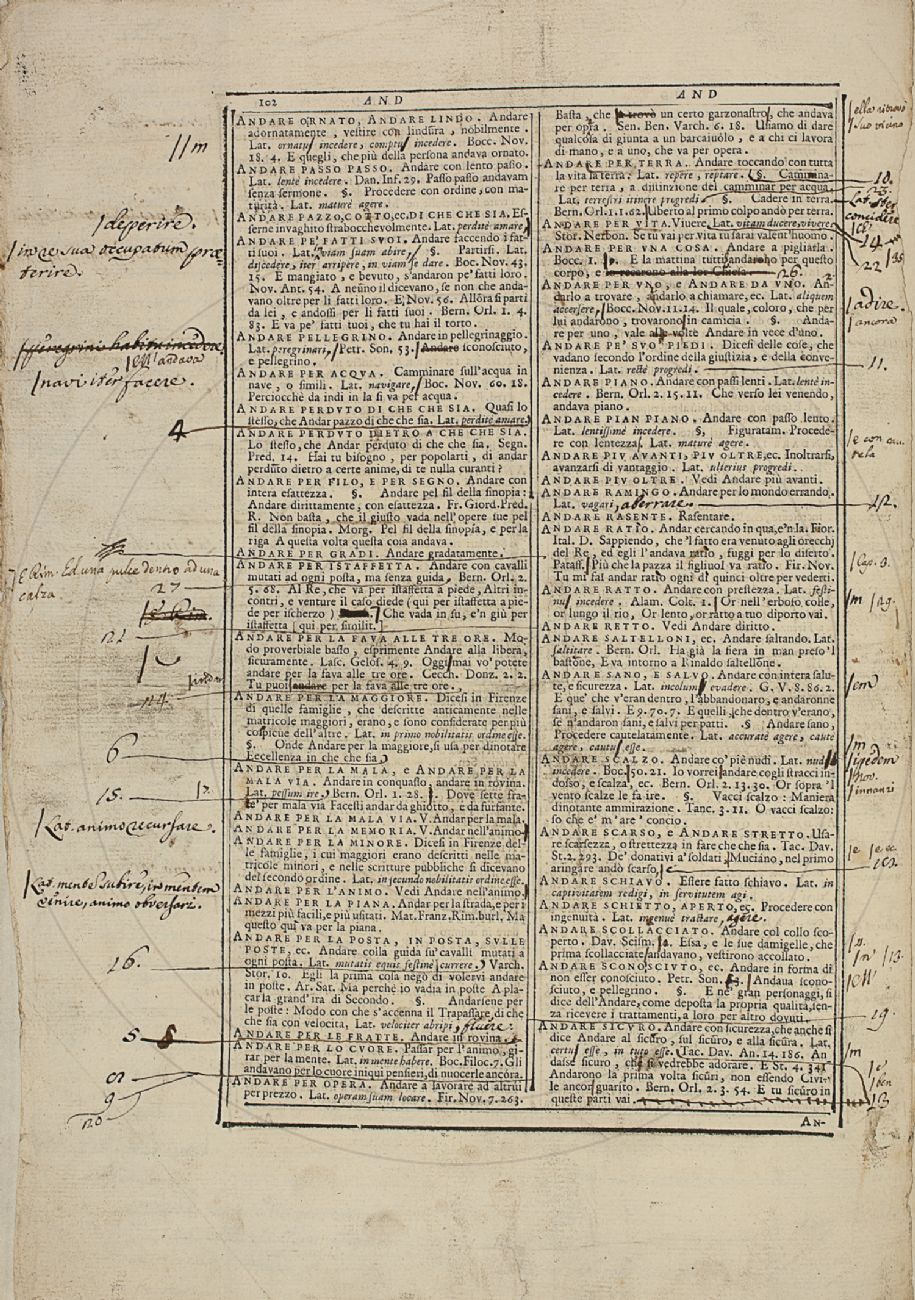 102 AND
AND
ANDARE ORNATO, ANDARE LINDO. Andare
adornatamente, vestire con lindura, nobilmente.
Lat. ornatus incedere, comptus incedere. Bocc. Nov.
18. 4. E quegli, che più della persona andava ornato.
ANDARE PASSO PASSO. Andare con lento passo.
Lat. lentè incedere. Dan. Inf. 29. Passo passo andavam
senza sermone. §. Procedere con ordine, con ma-
turità. Lat. maturè agere.
ANDARE PAZZO, COTTO, ec. DI CHE CHE SIA. Es-
serne invaghito strabocchevolmente. Lat. perditè amare
ANDARE PE' FATTI SUOI. Andare faccendo i fat-
ti suoi. Lat. viam suam abire. §. Partirsi. Lat.
discedere, iter arripere, in viam se dare. Boc. Nov. 43.
15. E mangiato, e bevuto, s'andaron pe' fatti loro.
Nov. Ant. 54. A neuno il dicevano, se non che anda-
vano oltre per li fatti loro. E Nov. 56. Allora si partì
da lei, e andossi per li fatti suoi. Bern. Orl. 1. 4.
83. E va pe' fatti tuoi, che tu hai il torto.
ANDARE PELLEGRINO. Andare in pellegrinaggio.
Lat. peregrinari. Petr. Son. 53. Andare sconosciuto,
e pellegrino.
ANDARE PER ACQUA. Camminare sull'acqua in
nave, o simili. Lat. navigare. Boc. Nov. 60. 18.
Perciocchè da indi in la si va per acqua.
ANDARE PERDUTO DI CHE CHE SIA. Quasi lo
stesso, che Andar pazzo di che che sia. Lat. perditè amare.
ANDARE PERDUTO DIETRO A CHE CHE SIA.
Lo stesso, che Andar perduto di che che sia. Segn.
Pred. 14. Hai tu bisogno, per popolarti, di andar
perduto dietro a certe anime, di te nulla curanti?
ANDARE PER FILO, E PER SEGNO. Andare con
intera esattezza. §. Andare pel fil della sinopia:
Andare dirittamente, con esattezza. Fr. Giord. Pred.
R. Non basta, che il giusto vada nell'opere sue pel
fil della sinopia. Morg. Pel fil della sinopia, e per la
riga A questa volta questa coia andava.
ANDARE PER GRADI. Andare gradatamente.
ANDARE PER ISTAFFETTA. Andare con cavalli
mutati ad ogni posta, ma senza guida. Bern. Orl. 2.
5. 68. Al Re, che va per istaffetta a piede, Altri in-
contri, e venture il caso diede (qui per istaffetta a pie-
de per ischerzo) Che vada in su, e'n giù per
istaffetta [qui per similit.]
ANDARE PER LA FAVA ALLE TRE ORE. Mo-
do proverbiale basso, esprimente Andare alla libera,
sicuramente. Lasc. Gelos. 4. 9. Oggi mai vo' potete
andare per la fava alle tre ore. Cecch. Donz. 2. 2.
Tu puoi andare per la fava alle tre ore.
ANDARE PER LA MAGGIORE. Dicesi in Firenze
di quelle famiglie, che descritte anticamente nelle
matricole maggiori, erano, e sono considerate per più
cospicue dell'altre. Lat. in primo nobilitatis ordine esse.
§. Onde Andare per la maggiore, si usa per dinotare
Eccellenza in che che sia
ANDARE PER LA MALA, e ANDARE PER LA
MALA VIA. Andare in conquasso, andare in rovina.
Lat. pessum ire. Bern. Orl. 1. 28. Dove sette fra-
te' per mala via Facesti andar da ghiotto, e da furfante.
ANDARE PER LA MALA VIA. V. Andar per la mala.
ANDARE PER LA MEMORIA. V. Andar nell'animo.
ANDARE PER LA MINORE. Dicesi in Firenze del-
le famiglie, i cui maggiori erano descritti nelle ma-
tricole minori, e nelle scritture pubbliche si dicevano
del secondo ordine. Lat. in secundo nobilitatis ordine esse.
ANDARE PER L'ANIMO. Vedi Andare nell'animo.
ANDARE PER LA PIANA. Andar per la strada, e per i
mezzi più facili, e più usitati. Mat. Franz. Rim. burl. Ma
questo qui va per la piana.
ANDARE PER LA POSTA, IN POSTA, SULLE
POSTE, ec. Andare colla guida su' cavalli mutati a
ogni posta. Lat. mutatis equis festinè currere. Varch.
Stor. 10. Egli la prima cosa negò di volervi andare
in poste. Ar. Sat. Ma perchè io vadia in poste A pla-
car la grand'ira di Secondo. §. Andarsene per
le poste: Modo con che s'accenna il Trapassare, di che
che sia con velocità, Lat. velociter abripi, fluere.
ANDARE PER LE FRATTE. Andare in rovina.
ANDARE PER LO CUORE. Passar per l'animo, gi-
rar per la mente. Lat. in mente habere. Boc. Filoc. 7. Gli
andavano per lo cuore iniqui pensieri, di nuocerle ancora.
ANDARE PER OPERA. Andare a lavorare ad altrui
per prezzo. Lat. operam suam locare. Fir. Nov. 7. 263.
Basta, che la trovò un certo garzonastro, che andava
per opra. Sen. Ben. Varch. 6. 18. Usiamo di dare
qualcosa di giunta a un barcaiuolo, e a chi ci lavora
di mano, e a uno, che va per opera.
ANDARE PER TERRA. Andare toccando con tutta
la vita la terra. Lat. repere, reptare. §. Cammina-
re per terra, a distinzione del camminar per acqua.
Lat. terrestri itinere progredi §. Cadere in terra.
Bern. Orl. 1. 1. 62. Uberto al primo colpo andò per terra.
ANDARE PER VITA. Vivere. Lat. vitam ducere, vivere
Stor. Nerbon. Se tu vai per vita tu sarai valent'huomo
ANDARE PER UNA COSA. Andare a pigliarla.
Bocc. 1. 9. E la mattina tutti andarono per questo
corpo, e lo recarono alla lor Chiesa. 26.
ANDARE PER UNO, e ANDARE DA UNO. An-
darlo a trovare, andarlo a chiamare, ec. Lat. aliquem
accersere. Bocc. Nov. 11. 14. Il quale, coloro, che per
lui andarono, trovarono in camicia. §. Anda-
re per uno, vale alle volte Andare in vece d'uno.
ANDARE PE' SUO' PIEDI. Dicesi delle cose, che
vadano secondo l'ordine della giustizia, e della conve-
nienza. Lat. rectè progredi.
ANDARE PIANO. Andare con passi lenti. Lat. lentè in-
cedere. Bern. Orl. 2. 15. 11. Che verso lei venendo,
andava piano.
ANDARE PIAN PIANO. Andare con passo lento.
Lat. lentissimè incedere. §. Figuratam. Procede-
re con lentezza. Lat. maturè agere.
ANDARE PIU AVANTI, PIU OLTRE, ec. Inoltrarsi,
avanzarsi di vantaggio. Lat. ulterius progredi.
ANDARE PIU OLTRE. Vedi Andare più avanti.
ANDARE RAMINGO. Andare per lo mondo errando.
Lat. vagari, aberrare.
ANDARE RASENTE. Rasentare.
ANDARE RATIO. Andar cercando in qua, e'n la. Fior.
Ital. D. Sappiendo, che 'l fatto era venuto agli orecchi
del Re, ed egli l'andava ratio, fuggì per lo diserto.
Pataff. Più che la pazza il figliuol va ratio. Fir. Nov.
Tu mi fai andar ratio ogni dì quinci oltre per vederti.
ANDARE RATTO. Andar con prestezza. Lat. festi-
nus incedere. Alam. Colt. 1. Or nell'erboso colle,
or lungo il rio, Or lento, or ratto a tuo diporto vai.
ANDARE RETTO. Vedi Andare diritto.
ANDARE SALTELLONI, ec. Andare saltando. Lat.
saltitare. Bern. Orl. Ha già la fiera in man preso 'l
bastone, E va intorno a Rinaldo saltellone.
ANDARE SANO, E SALVO. Andare con intera salu-
te, e sicurezza. Lat. incolumis evadere. G. V. 8. 86. 2.
E que' che v'eran dentro, l'abbandonaro, e andaronne
sani, e salvi. E 9. 70. 7. E quelli che dentro v'erano,
se n'andaron sani, e salvi per patti. §. Andare sano,
Procedere cautelatamente. Lat. accuratè agere, cautè
agere, cautus esse.
ANDARE SCALZO. Andare co' piè nudi. Lat. nudus
incedere. Boc. 50. 21. Io vorrei andare cogli stracci in-
dosso, e scalza, ec. Bern. Orl. 2. 13. 30. Or sopra 'l
vento scalze le fa ire. §. Vacci scalzo: Maniera
dinotante ammirazione. Tanc. 3. 11. O vacci scalzo:
so che e' m'are' concio.
ANDARE SCARSO, e ANDARE STRETTO. Usa-
re scarsezza, o strettezza in fare che che sia. Tac. Dav.
St. 2. 293. De' donativi a' soldati, Muciano, nel primo
aringare andò scarso.
ANDARE SCHIAVO. Essere fatto schiavo. Lat. in
captivitatem redigi, in servitutem agi.
ANDARE SCHIETTO, APERTO, ec. Procedere con
ingenuità. Lat. ingenuè tractare, agere.
ANDARE SCOLLACCIATO. Andare col collo sco-
perto. Dav. Scism. Essa, e le sue damigelle, che
prima scollacciate andavano, vestirono accollato.
ANDARE SCONOSCIUTO, ec. Andare in forma di
non esser conosciuto. Petr. Son. Andava scono-
sciuto, e pellegrino. §. E ne' gran personaggi, si
dice dell'Andare, come deposta la propria qualità, sen-
za ricevere i trattamenti, a loro per altro dovuti.
ANDARE SICURO. Andare con sicurezza, che anche si
dice Andare al sicuro, sul sicuro, e alla sicura. Lat.
certus esse, in tuto esse. Tac. Dav. An. 14. 186. An
dasse sicuro, che si vedrebbe adorare. E St. 4. 341
Andarono la prima volta sicuri, non essendo Civi-
le ancor guarito. Bern. Orl. 2. 3. 54. E tu sicuro in
queste parti vai.
AN-
deperire.
in re sua occupatum præ-
terire.
navi iter facere.
4
E Rim. Ed una pulce dentro ad una
calza
27
6
15.
Lat. animo recursare.
Lat. mente subire, in mentem
inire, animo obversari.
16.
5
9
20
10.
14
22
adire.
ancora
11.
12.
Cap. 8.
19.
13